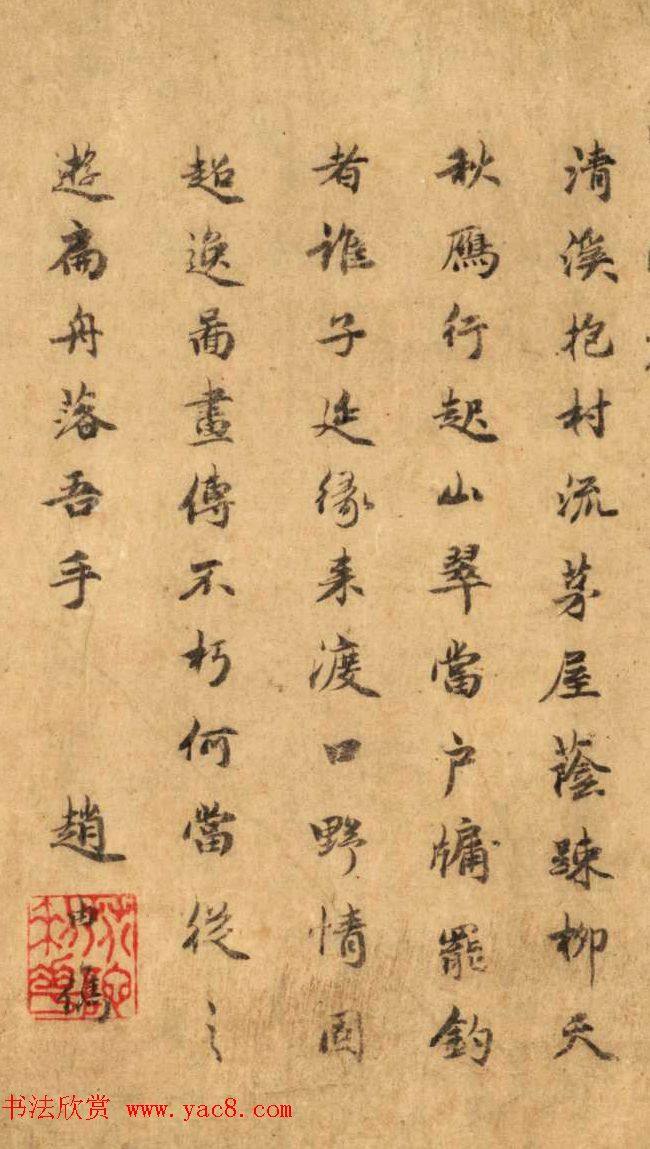 清溪抱村流茅屋蔭踈柳天
秋鴈行起山翠當户牖罷釣
者誰子延緣来渡口野情固
超逸圖畫傳不朽何當從之
遊扁舟落吾手
趙
书法欣赏 www.yac8.com